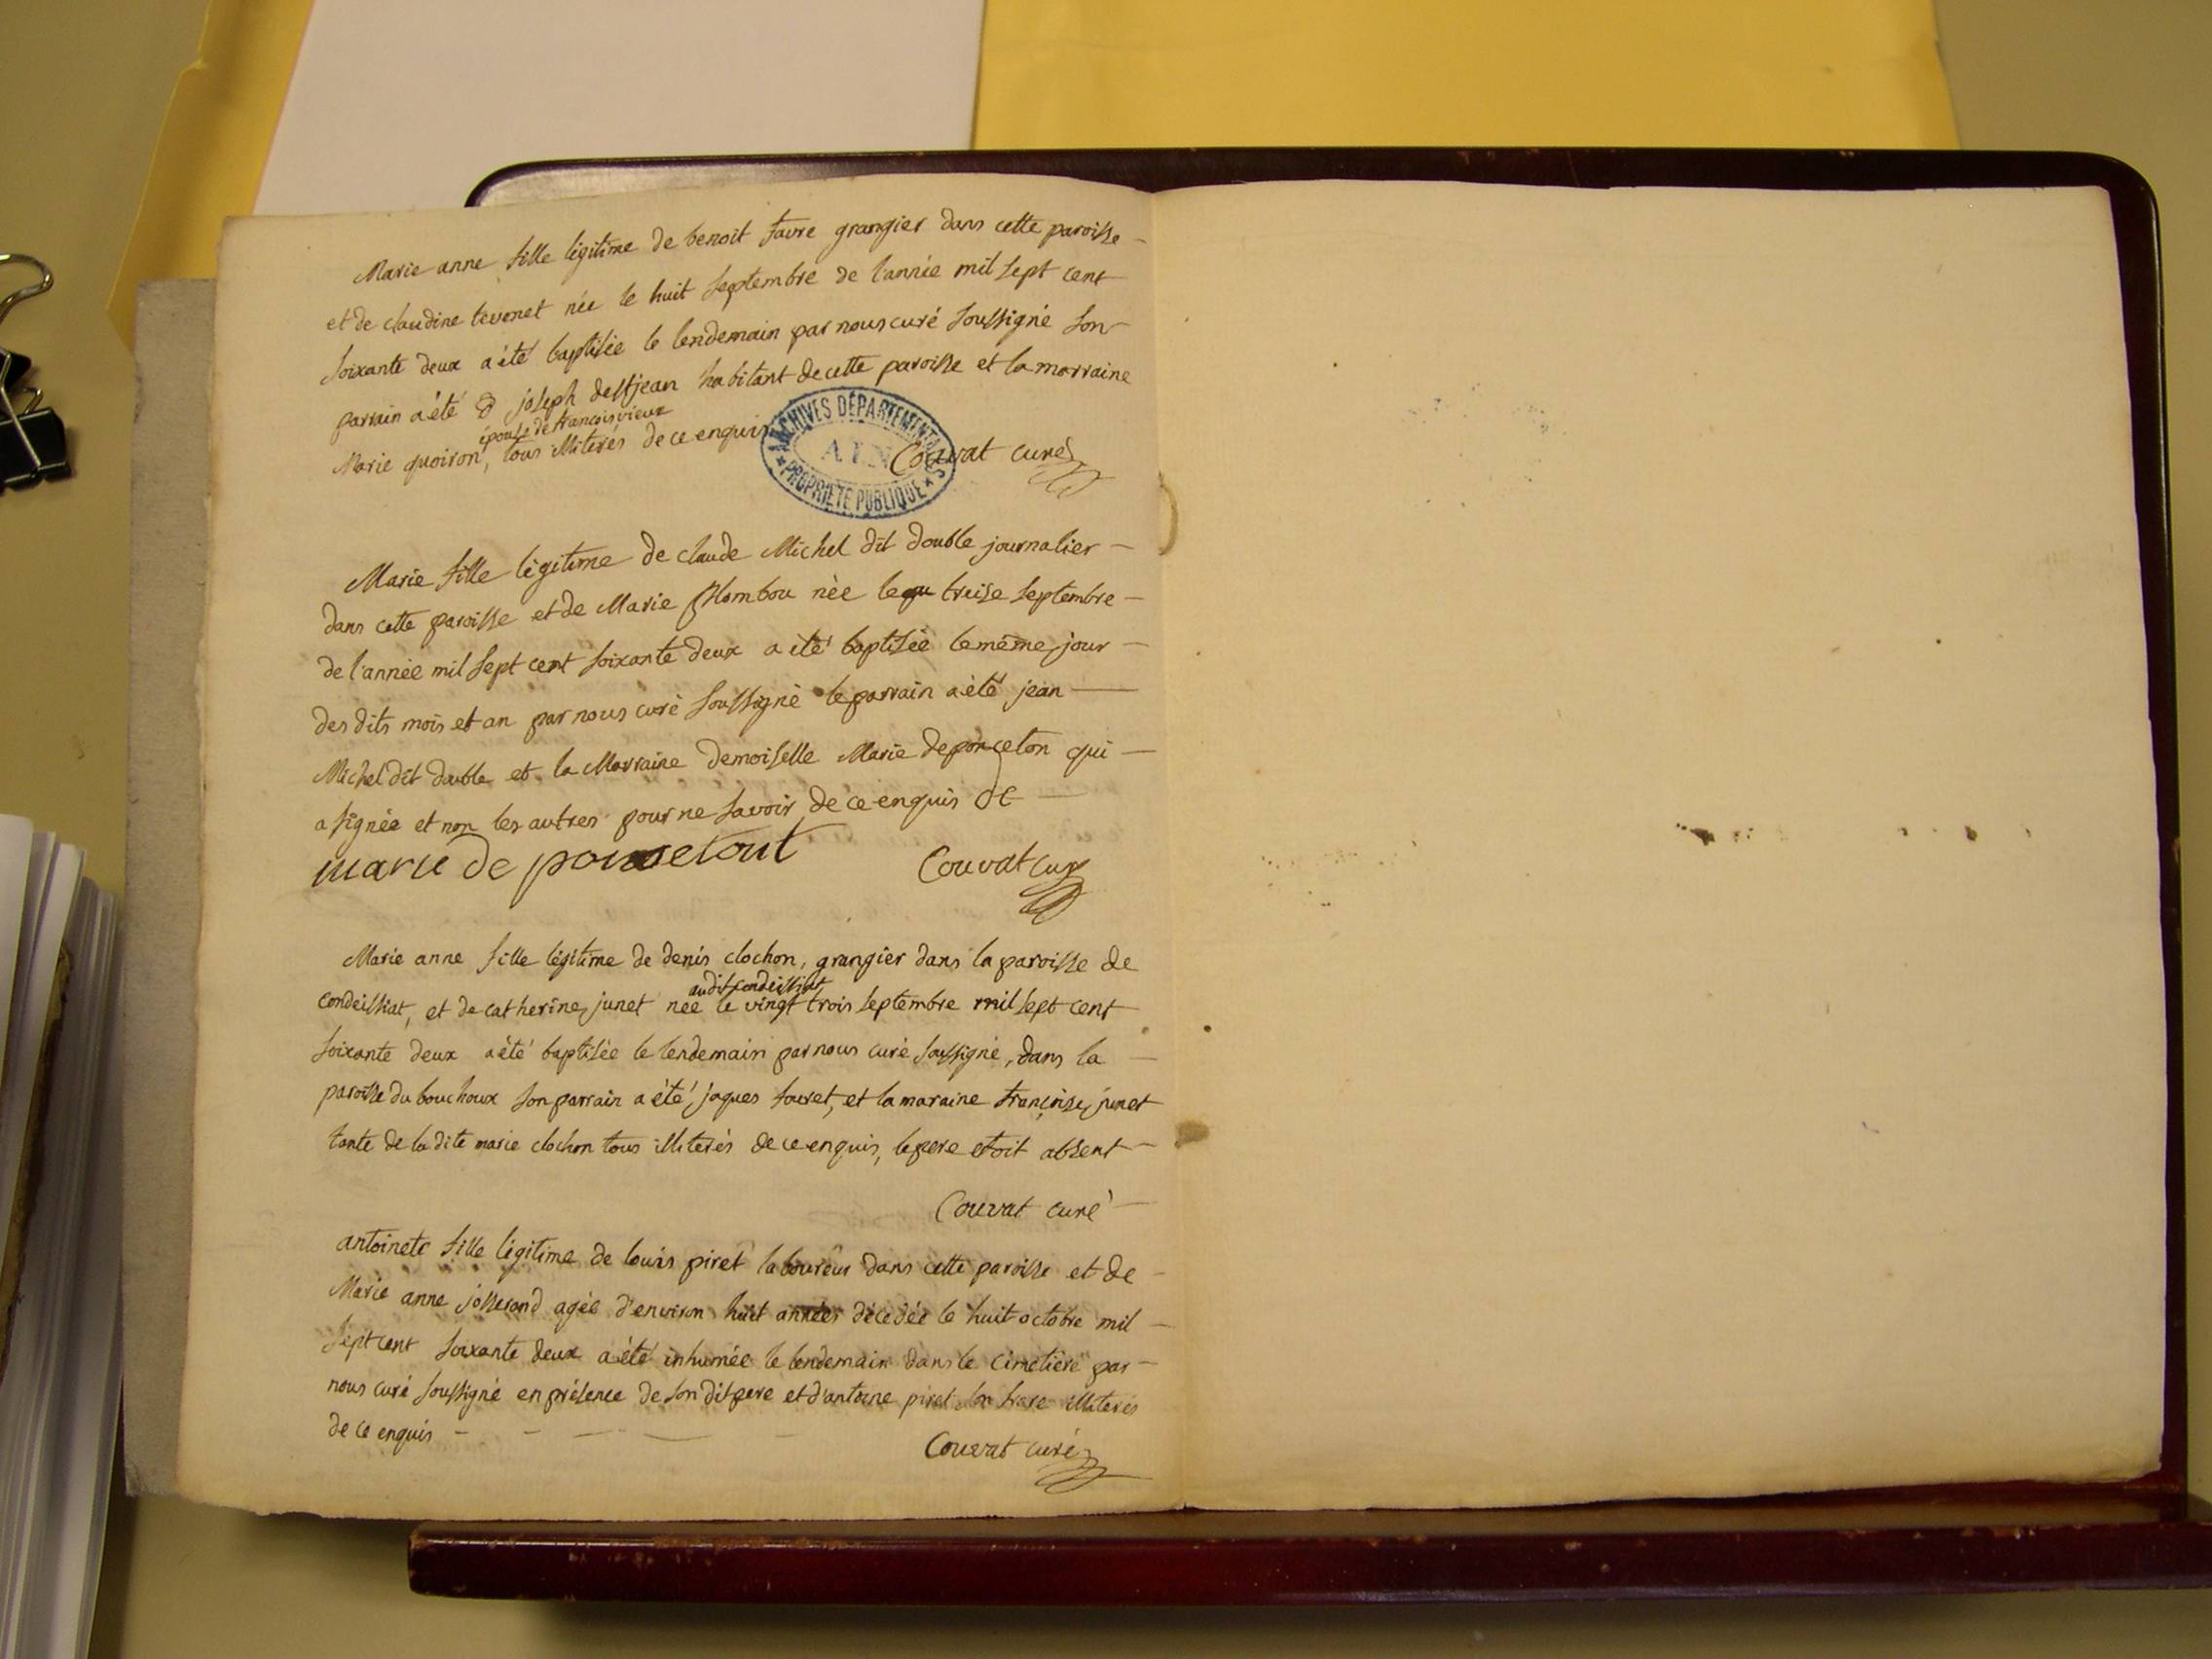 Marie anne fille légitime de benoit favre grangier dans cette paroisse
et de claudine tevenet née le huit septembre de l'année mil sept cent
soixante deux a été baptisée le lendemain par nous curé soussigné son
parrain a été joseph destjean habitant de cette paroisse et la marraine
épouse de francois vieux
Marie quoiron, tous illiterés de ce enquis
Couvat curé
ARCHIVES DÉPARTEMENTALES
AIN
PROPRIETE PUBLIQUE
Marie fille légitime de claude Michel dit double journalier
dans cette paroisse et de Marie plombou née le treise septembre
de l'année mil sept cent soixante deux a été baptisée le même jour
des dits mois et an par nous curé soussigné le parrain a été jean
Michel dit double et la Marraine demoiselle Marie deponceton qui
a signée et non les autres pour ne savoir de ce enquis
marie de
Couvat curé
Marie anne fille légitime de denis clochon, grangier dans la paroisse de
audit condeissiat
condeissiat, et de catherine junet née le vingt trois septembre mil sept cent
soixante deux a été baptisée le lendemain par nous curé soussigné, dans la
paroisse du bouchoux son parrain a été jaques favret, et la maraine françoise junet
tante de la dite marie clochon tous illiterés de ce enquis, le pere etoit absent
Couvat curé
antoinete fille légitime de louis piret laboureur dans cette paroisse et de
Marie anne josserand agée d'environ huit années décedée le huit octobre mil
sept cent soixante deux a été inhumée le lendemain dans le cimetière par
nous curé soussigné en présence de son dit pere et d'antoine piret son frere illiterés
de ce enquis
Couvat curé